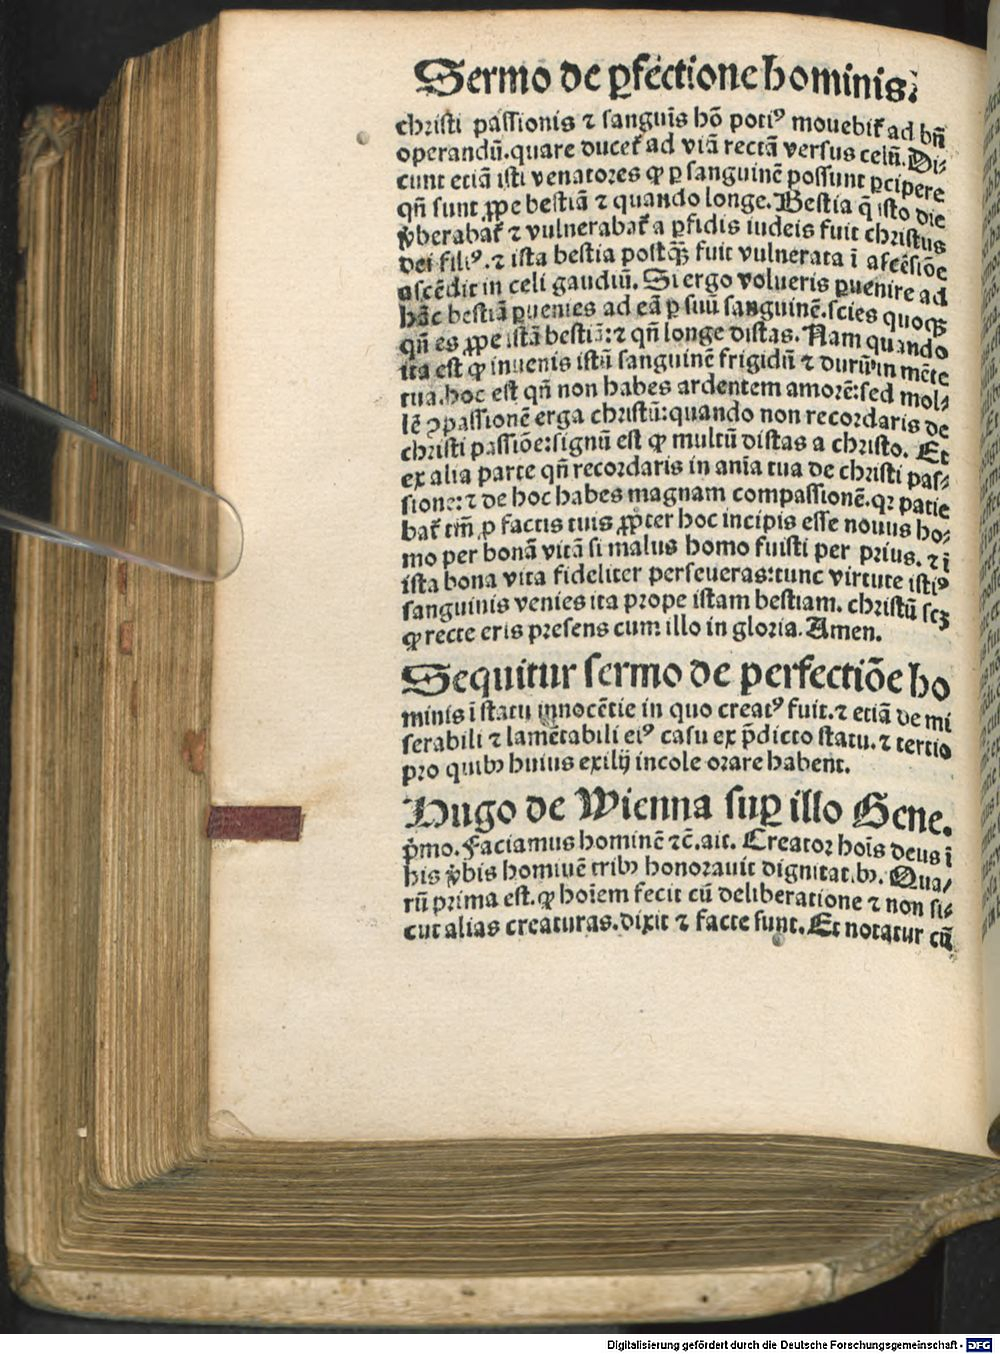 Sermo de ꝑfectione hominis.
christi passionis ⁊ sanguĩs hõ poti⁹ mouebit᷑ ad bñ
operandũ. quare ducet᷑ ad viã rectã versus celũ. Di⸗
cunt etiã isti venatores ꝙ ꝑ sanguinẽ possunt ꝑcipere
qñ sunt ꝓpe bestiã ⁊ quando longe. Bestia q̃ isto die
v̾berabat᷑ ⁊ vulnerabat᷑ a ꝑfidis iudeis fuit christus
dei fili⁹. ⁊ ista bestia postꝗ̃ fuit vulnerata ĩ ascẽsiõe
ascẽdit in celi gaudiũ. Si ergo volueris ꝑuenire ad
hãc bestiã ꝑuenies ad eã ꝑ suũ sanguinẽ. scies quoqꝫ
qñ es ꝓpe istã bestiã: ⁊ qñ longe distas. Nam quando
ita est ꝙ inuenis istũ sanguinẽ frigidũ ⁊ durũ in mẽte
tua. hoc est qñ non habes ardentem amorẽ: sed mol⸗
lẽ ꝯpassionẽ erga christũ: quando non recordaris de
christi passiõe: signũ est ꝙ multũ distas a christo. Et
ex alia parte qñ recordaris in anĩa tua de christi pas⸗
sione: ⁊ de hoc habes magnam compassionẽ. qꝛ patie
bat᷑ tm̃ ꝓ factis tuis ꝓpter hoc incipis esse nouus ho⸗
mo per bonã vitã si malus homo fuisti per prius. ⁊ ĩ
ista bona vita fideliter perseueras: tunc virtute isti⁹
sanguinis venies ita prope istam bestiam. christũ scꝫ
ꝙ recte eris presens cum illo in gloria. Amen.
Sequitur sermo de perfectiõe ho
minis ĩ statu innocẽtie in quo creat⁹ fuit. ⁊ etiã de mi
serabili ⁊ lamẽtabili ei⁹ casu ex p̃dicto statu. ⁊ tertio
pro quibꝫ huius exilij incole orare habent.
Hugo de Wienna suꝑ illo Gene.
p̾mo. Faciamus hominẽ ⁊c̃. ait. Creator hoĩs deus ĩ
his v̾bis hominẽ tribꝫ honorauit dignitat.bꝫ. Qua⸗
rũ prima est. ꝙ hoĩem fecit cũ deliberatione ⁊ non si⸗
cut alias creaturas. dixit ⁊ facte sunt. Et notatur cũ
Digitalisierung gefördert durch die Deutsche Forschungsgemeinschaft - DFG